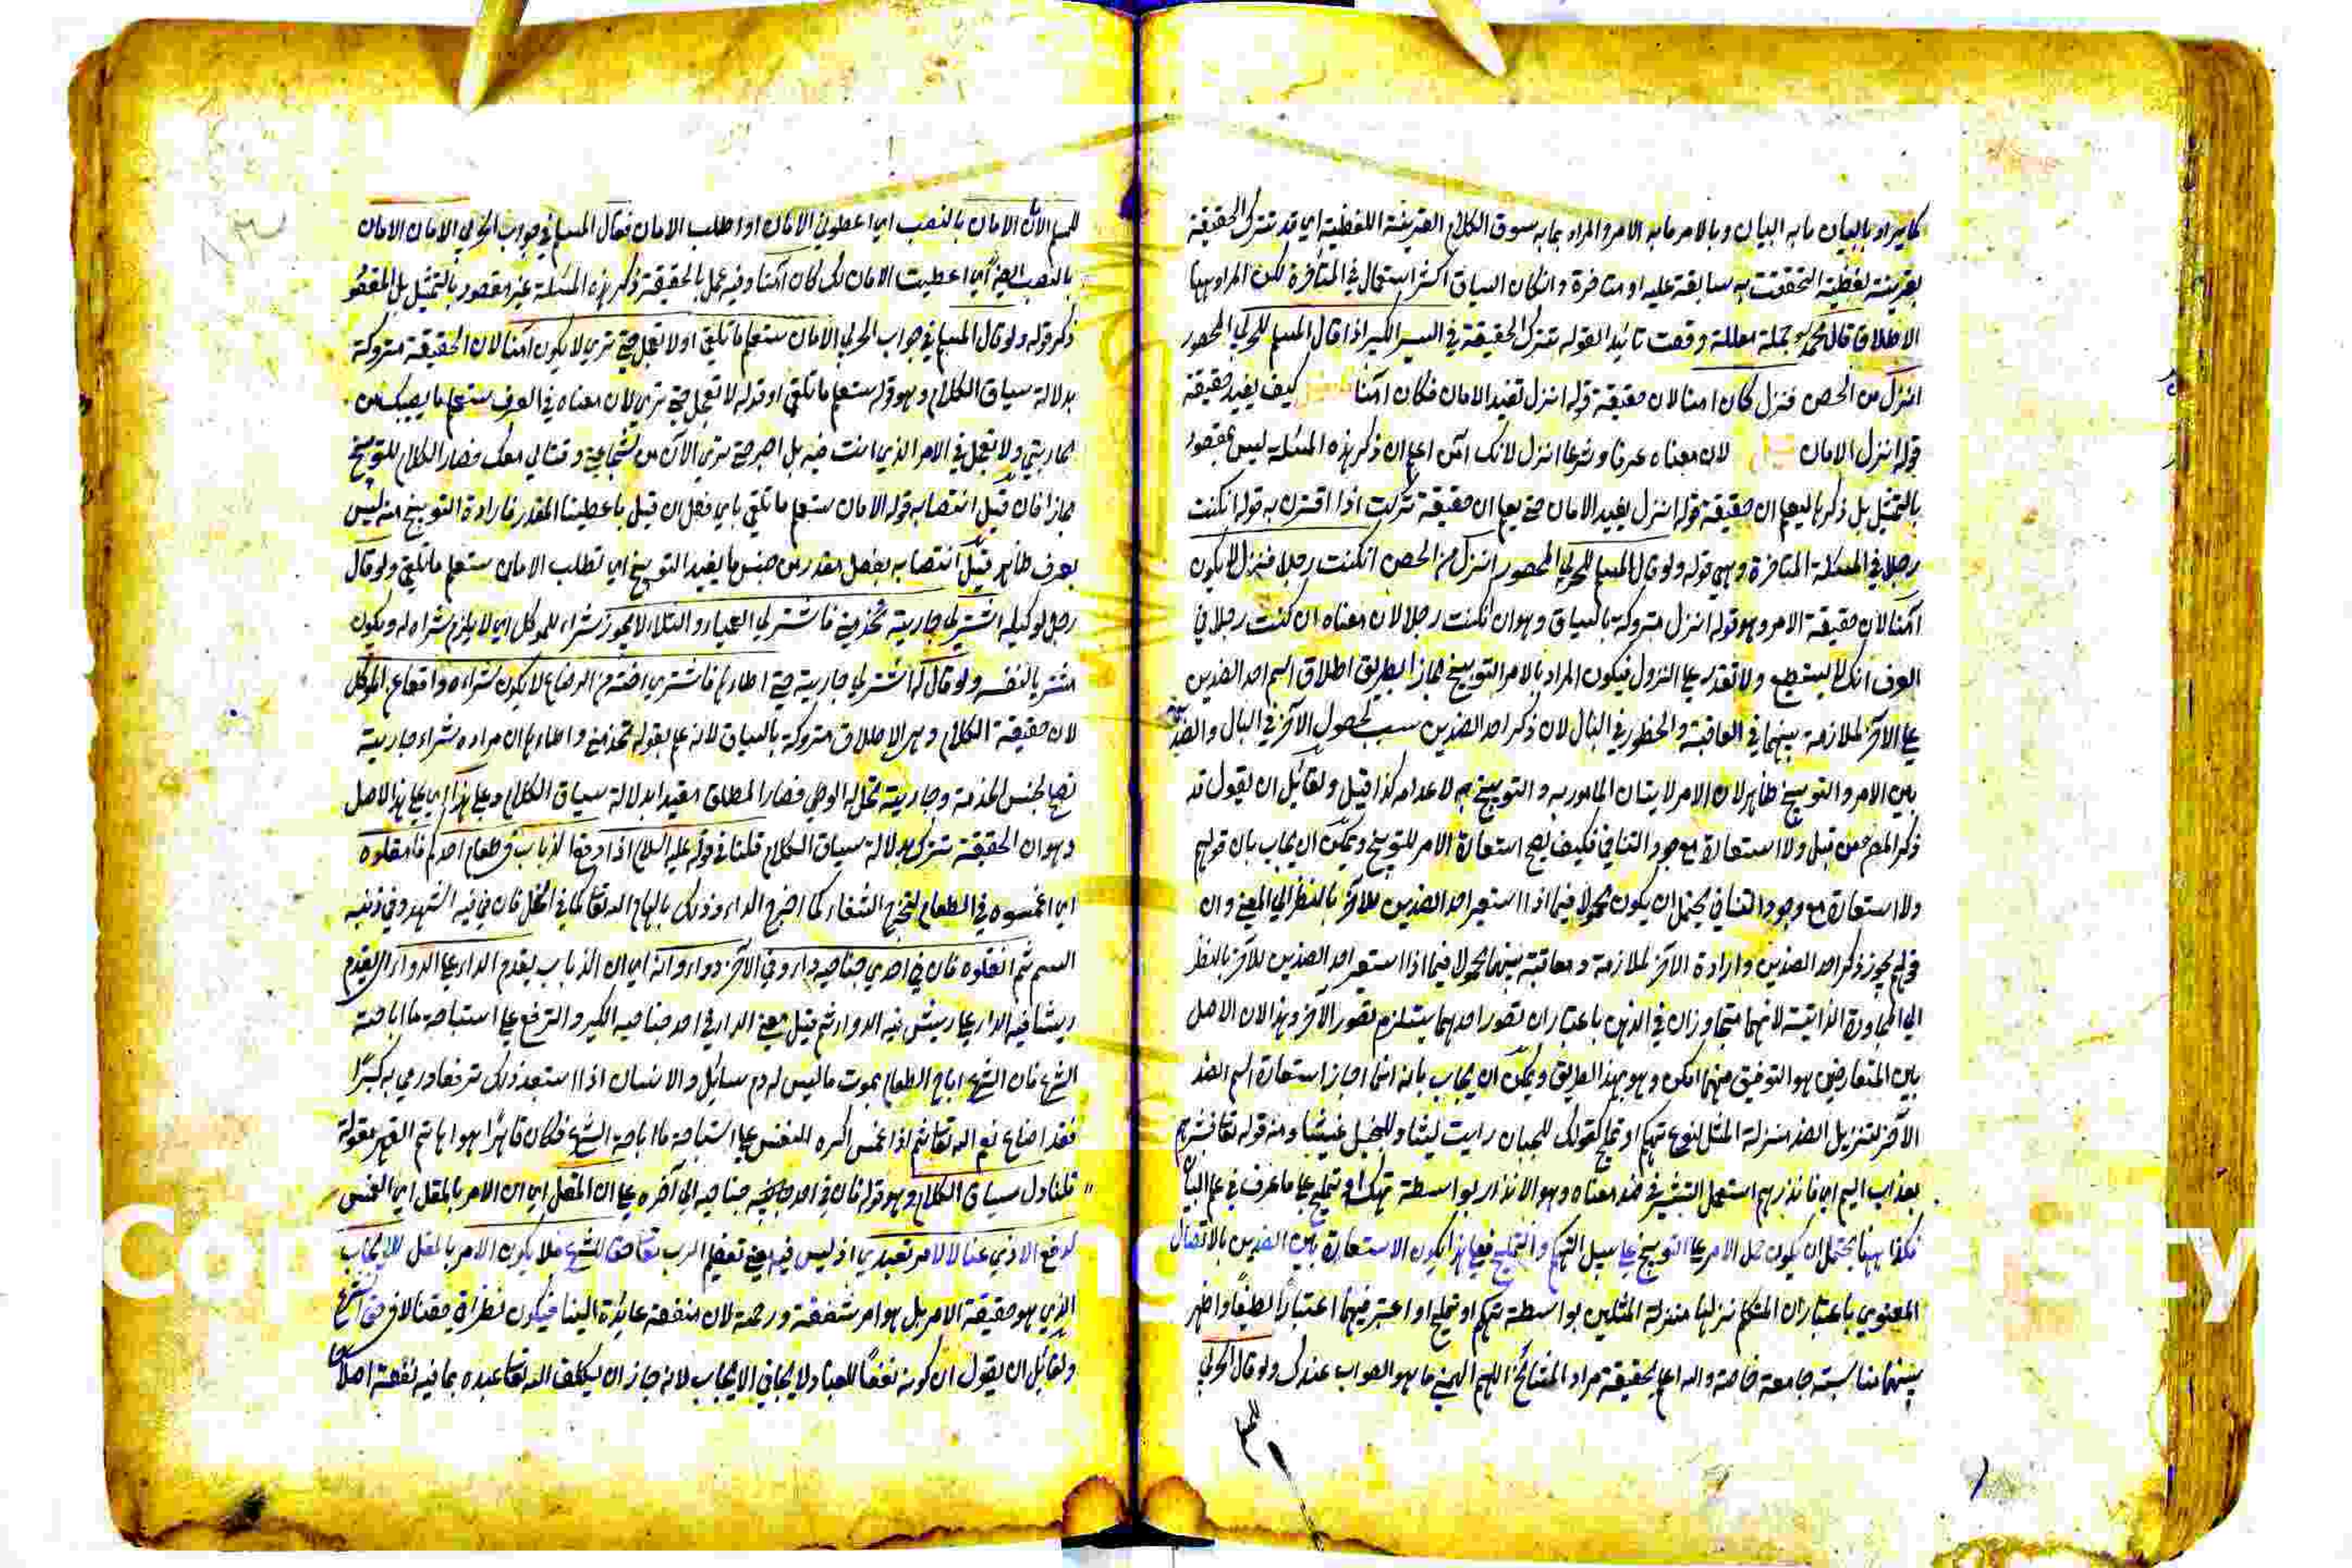 كما يراد بالبيان ما به البيان وبالامر ما به الامر والمراد بما به سوق الكلام القرينة اللفظية اي قد تترك الحقيقة
بقرينة لفظية التحققت به سابقة عليه او متاخرة وان كان السياق اكثر استعمال في المتأخرة لكن المراد ههنا
الاطلاق قال محمد جملة معللة وقعت تائيدا لقوله تترك الحقيقة في السير الكبير اذا قال المسلم للحربي المحصور
انزل من الحصن فنزل كان امنا لان حقيقة قوله انزل تفيد الامان فكان آمنا كيف يفيد حقيقة
قوله انزل الامان لان معناه عرفا وشرعا انزل لانك آمن اعلم ان ذكر هذه المسئلة ليس بمقصود
بالتمثيل بل ذكرها ليعلم ان حقيقة قوله انزل يفيد الامان حتى يعلم ان حقيقة تركت اذا اقترن به قوله ان كنت
رجلا في المسئلة المتاخرة وهي قوله ولو قال المسلم للحربي المحصور انزل من الحصن ان كنت رجلا فنزل لا يكون
آمنا لان حقيقة الامر وهو قوله انزل متروكة بالسياق وهو ان كنت رجلا لان معناه ان كنت رجلا في
العرف انك لا تستطيع ولا تقدر على النزول فيكون المراد بالامر التوبيخ مجازا بطريق اطلاق اسم احد الضدين
على الآخر لملازمة بينهما في العاقبة والحظور في البال لان ذكر احد الضدين سبب لحصول الآخر في البال والضدية
بين الامر والتوبيخ ظاهر لان الامر لايتان المامور به والتوبيخ به لاعدامه كذا قيل ولقائل ان يقول قد
ذكر المص من قبل ولا استعارة مع وجود التنافي فكيف يصح استعارة الامر للتوبيخ ويمكن ان يجاب بان قولهم
ولا استعارة مع وجود التنافي يحتمل ان يكون محمولا فيما اذا استعير احد الضدين للآخر بالنظر الى المعنى وان
قولهم يجوز ذكر احد الضدين وارادة الآخر لملازمة ومعاقبة بينهما محمولا فيما اذا استعير احد الضدين للآخر بالنظر
الى المجاورة الذاتية لانهما متجاوزان في الذهن باعتبار ان تصور احدهما يستلزم تصور الآخر وهذا لان الاصل
بين المتعارضين هو التوفيق مهما امكن وهو بهذا الطريق ويمكن ان يجاب بانه انما اجاز استعارة اسم الضد
الآخر لتنزيل الضد منزلة المثل لنوع تهكم او تمليح كقولك للجبان رايت ليثا وللبخيل غيثا ومنه قوله تعا فبشرهم
بعذاب اليم اي فانذرهم استعمل التبشير في ضد معناه وهو الانذار بواسطة تهكم او تمليح على ما عرف في علم البيان
فكذا ههنا يحتمل ان يكون حمل الامر على التوبيخ على سبيل التهكم والتمليح فعلى هذا يكون الاستعارة بين الضدين بالاتصال
المعنوي باعتبار ان المتكلم نزلهما منزلة المثلين بواسطة تهكم او تمليح او اعتبر فيهما اعتبارا لطيفا واظهر
بينهما مناسبة جامعة خاصة والله اعلم بحقيقة مراد المشائخ اللهم الهمني ما هو الصواب عندك ولو قال الحربي
للمسلم
للمسلم الامان الامان بالنصب اي اعطوني الامان او اطلب الامان فقال المسلم في جواب الحربي الامان الامان
بالنصب ايضا اي اعطيت الامان لك كان آمنا وفيه عمل بالحقيقة ذكر هذه المسئلة غير مقصود بالتمثيل بل المقصود
ذكر قوله ولو قال المسلم في جواب الحربي الامان ستعلم ما تلقى او لا تعجل حتى ترى لا يكون آمنا لان الحقيقة متروكة
بدلالة سياق الكلام وهو قوله ستعلم ما تلقى او قوله لا تعجل حتى ترى لان معناه في العرف ستعلم ما يصيبك من
محاربتي ولا تعجل في الامر الذي انت فيه بل اصبر حتى ترى الآن من شجاعتي وقتالي معك فصار الكلام للتوبيخ
مجازا فان قيل انتصاب قوله الامان ستعلم ما تلقى باي فعل ان قيل باعطيتنا المقدر فارادة التوبيخ منه ليس
بعرف ظاهر قيل انتصابه بفعل مقدر من جنس ما يفيد التوبيخ اي تطلب الامان ستعلم ما تلقى ولو قال
رجل لوكيله اشتر لي جارية تخدمني فاشترى العمياء او الشلاء لا يجوز شراء للموكل اي لا يلزم شراه له ويكون
مشتريا لنفسه ولو قال له اشتر لي جارية حتى اطاءها فاشترى اخته من الرضاع لا يكون شراءه واقعا عن الموكل
لان حقيقة الكلام وهو الاطلاق متروكة بالسياق لانه علم بقوله تخدمني واطاءها ان مراده شراء جارية
تصلح لجنس الخدمة وجارية تحل له الوطي فصار المطلق مقيدا بدلالة سياق الكلام وعلى هذا اي على هذا الاصل
وهو ان الحقيقة تترك بدلالة سياق الكلام قلنا في قوله عليه السلام اذا وقع الذباب في طعام احدكم فامقلوه
اي اغمسوه في الطعام لتخرج الشفاء كما اخرج الداء وذلك بالهام الله تعا كما في النحل فان في فيه الشهد وفي ذنبه
السم ثم انقلوه فان في احدى جناحيه داء وفي الآخر دواء وانه اي ان الذباب يقدم الداء على الدواء اي يقدم
ريشا فيه الداء على ريش فيه الدواء ثم قيل معنى الداء في احد جناحيه الكبر والترفع على استباحة ما اباحته
الشرع فان الشرع اباح الطعام بموت ما ليس له دم سائل والانسان اذا استبعد ذلك ترفعا ورمي به كبرا
فقد اضاع نعم الله تعا ثم اذا غمس اكره النفس على استباحة ما اباحه الشرع فكان قاهرا هواها ثم القهر مقولة
قلنا دل سياق الكلام وهو قوله فان في احدى جناحيه الى آخره على ان المقل اي ان الامر بالمقل اي الغمس
لدفع الاذى عنا لا لامر تعبدي اذ ليس فيه معنى تعظيم الرب تعا حقا للشرع فلا يكون الامر بالمقل للايجاب
الذي هو حقيقة الامر بل هو امر شفقة ورحمة لان منفعة عائدة الينا فيكون نظرا في حقنا لا في حق الشرع
ولقائل ان يقول ان كونه نفعا للعباد لا ينافي الايجاب لانه جاز ان يكلف الله تعا عبده بما فيه نفعه اصلا